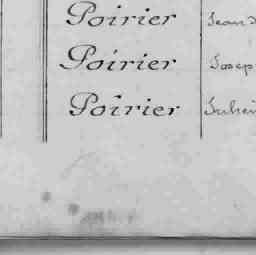 Poirier Jean
Poirier Josep
Poirier